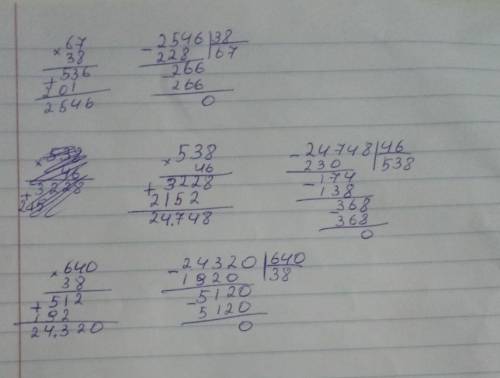 ×67
38
+536
201
2546
-2546|38
228|67
-266
266
0
×538
46
+3228
2152
24.748
-24748|46
230|538
-174
138
-368
368
0
×640
38
+512
192
24.320
-24320|640
1920|38
-5120
5120
0